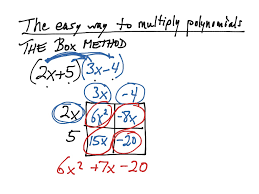 The easy way to multiply polynomials
THE BOX METHOD
(2x+5)(3x-4)
3x -4
2x 6x² -8x
5 15x -20
6x² +7x -20